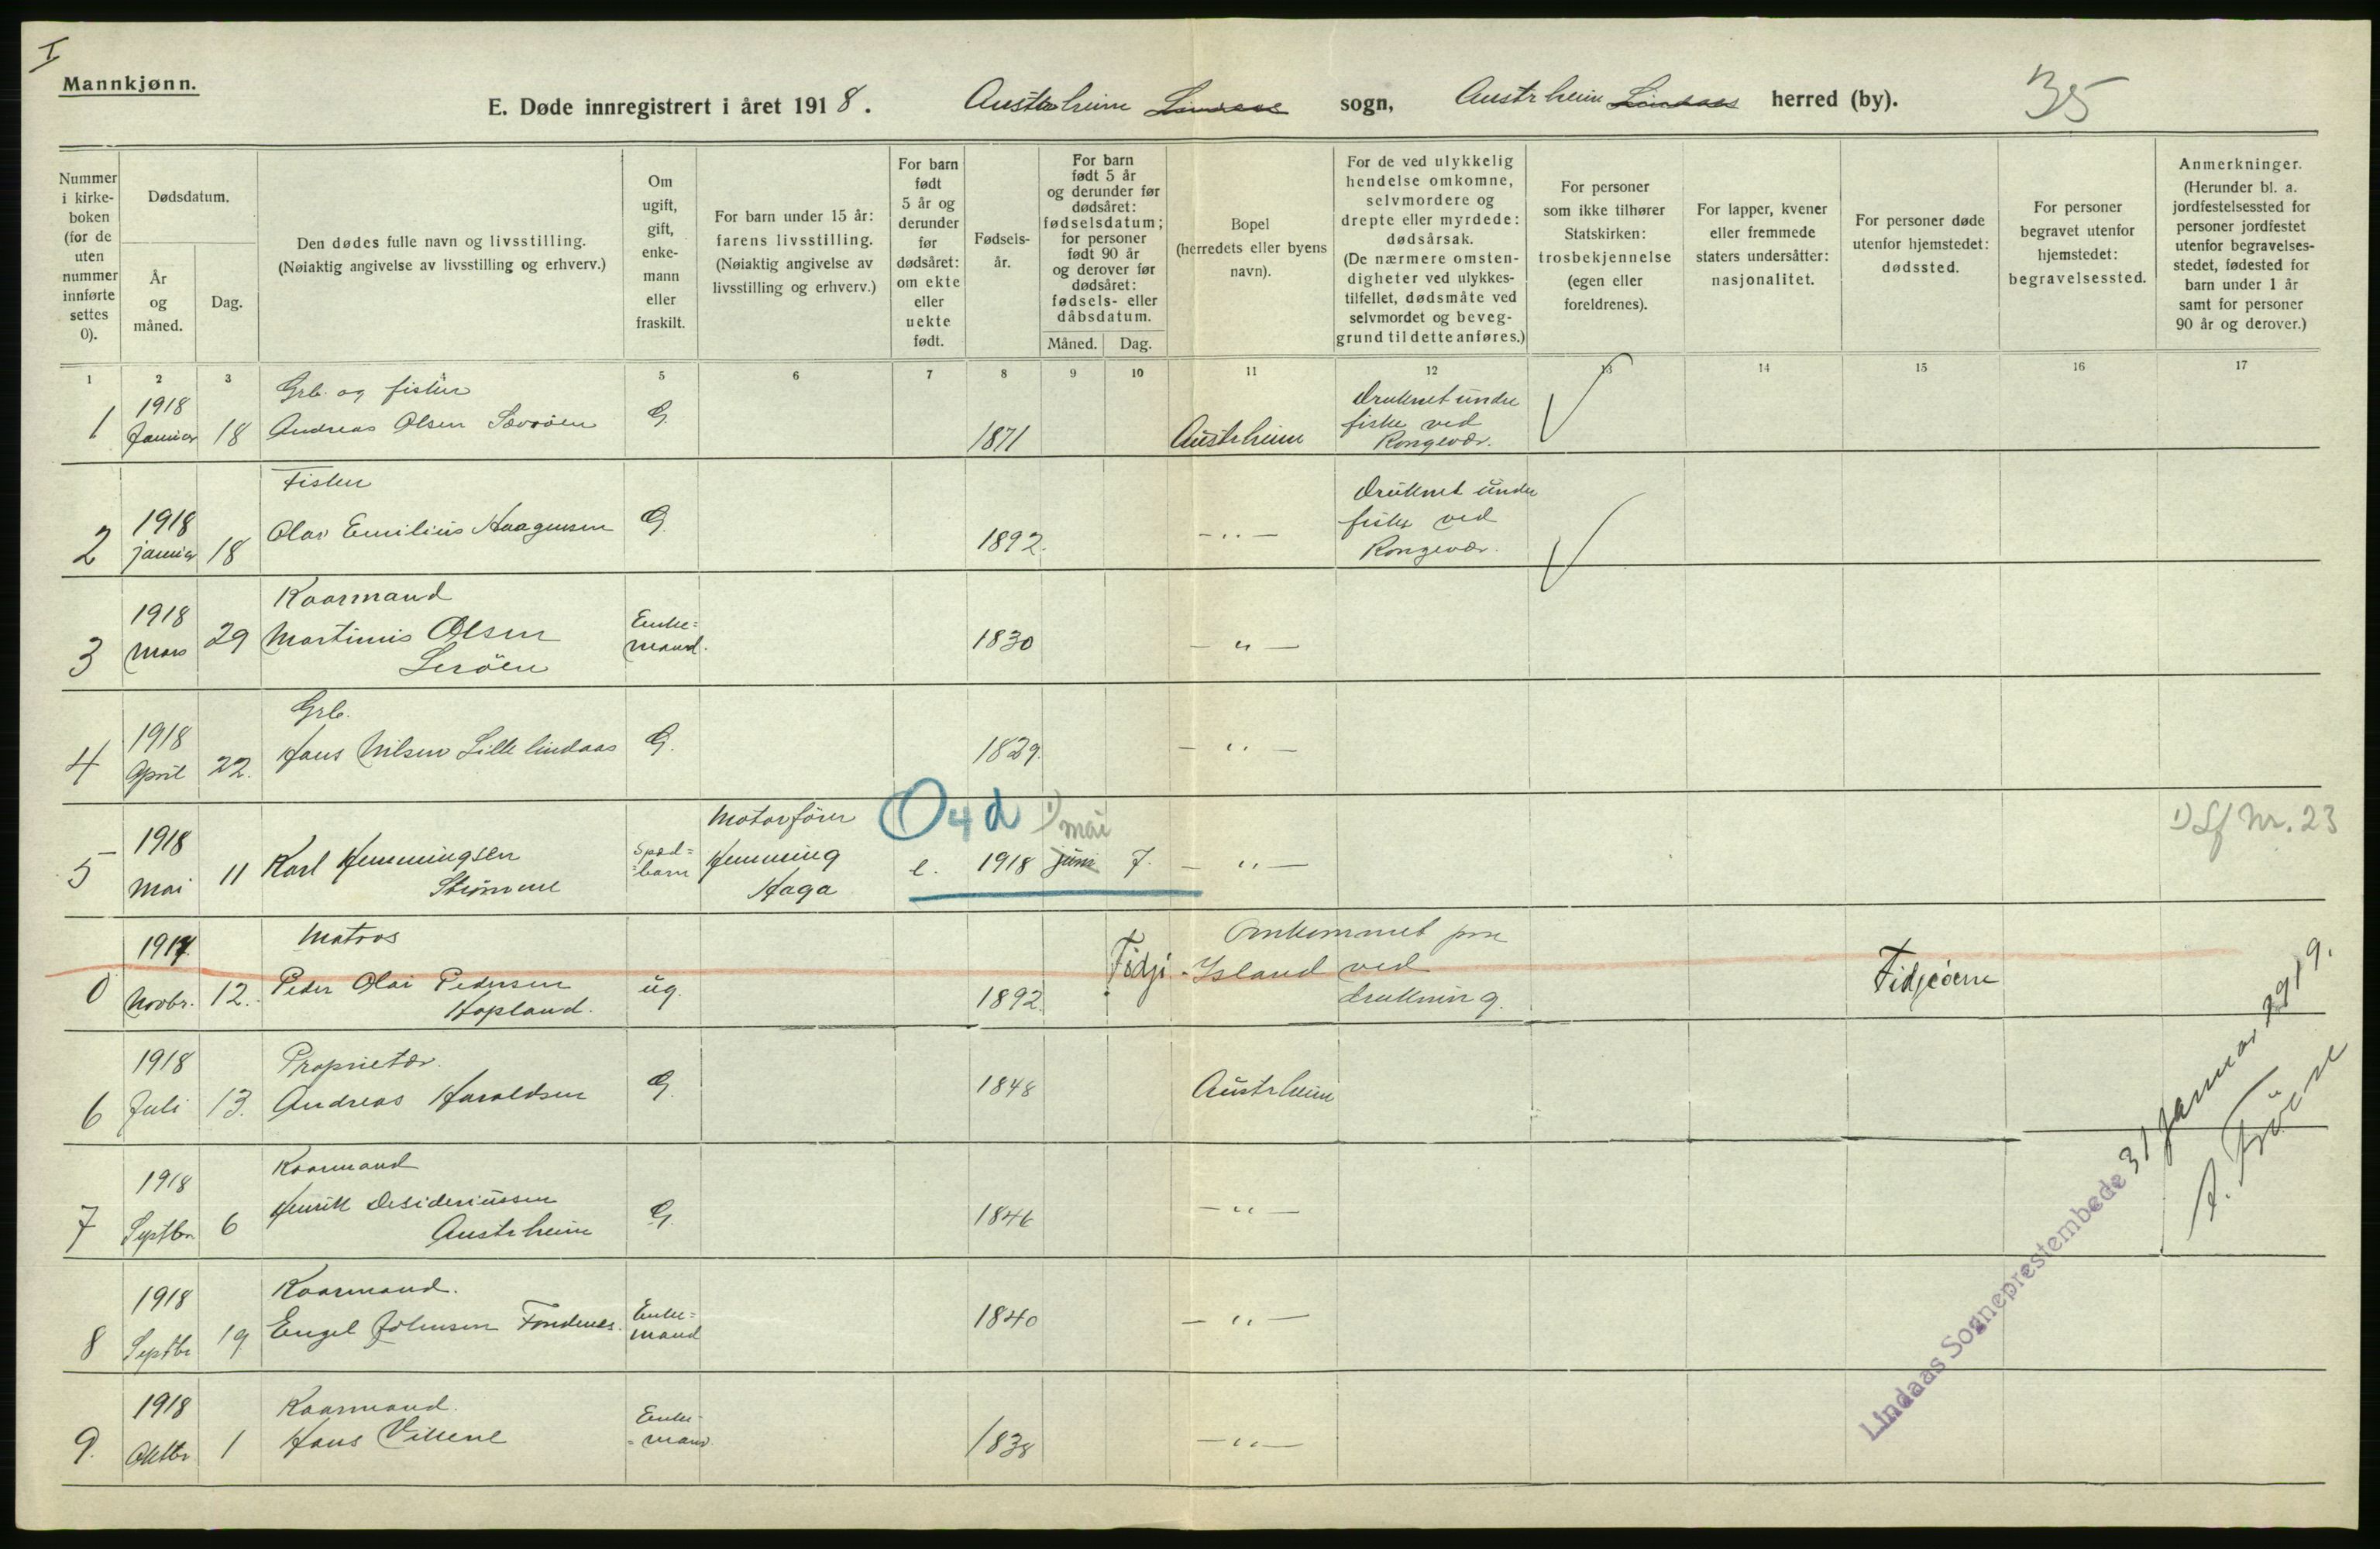 I
Mannkjønn.
E. Døde innregistrert i året 1918. Austrheim Lindaas sogn, Austrheim Lindaas herred (by). 35
Nummer i kirke-boken (for de uten nummer innførte settes 0).
Dødsdatum.
År og måned.
Dag.
Den dødes fulle navn og livsstilling.
(Nøiaktig angivelse av livsstilling og erhverv.)
Om ugift, gift, enke-mann eller fraskilt.
For barn under 15 år: farens livsstilling. (Nøiaktig angivelse av livsstilling og erhverv.)
For barn født 5 år og derunder før dødsåret: om ekte eller uekte født.
Fødsels-år.
For barn født 5 år og derunder før dødsåret: fødselsdatum; for personer født 90 år og derover før dødsåret: fødsels- eller dåbsdatum.
Måned. Dag.
Bopel (herredets eller byens navn).
For de ved ulykkelig hendelse omkomne, selvmordere og drepte eller myrdede: dødsårsak. (De nærmere omsten-digheter ved ulykkes-tilfellet, dødsmåte ved selvmordet og beveg-grund til dette anføres.)
For personer som ikke tilhører Statskirken: trosbekjennelse (egen eller foreldrenes).
For lapper, kvener eller fremmede staters undersåtter: nasjonalitet.
For personer døde utenfor hjemstedet: dødssted.
For personer begravet utenfor hjemstedet: begravelsessted.
Anmerkninger. (Herunder bl. a. jordfestelsessted for personer jordfestet utenfor begravelses-stedet, fødested for barn under 1 år samt for personer 90 år og derover.)
1 2 3 4 5 6 7 8 9 10 11 12 13 14 15 16 17
Grb. og fisker
1 1918 Januar 18 Andreas Olsen Sævröen G. 1871 Austrheim Druknet under fiske ved Rongevær.
Fisker
2 1918 januar 18 Olai Emilius Haagensen G. 1892. -"- Druknet under fiske ved Rongevær.
Kaarmand
3 1918 Mars 29 Martinus Olsen Leröen Enke=mand. 1830 -"-
Grb.
4 1918 April 22. Hans Nilsen Lille lindaas G. 1829. -"-
5 1918 Mai 11 Karl Hemmingsen Strömme Spæd=barn Motorförer Hemming Haga O4d e. 1918 juni 1) mai 7. -"- 1) Lf Nr. 23
Matros
0 1917. Novbr. 12. Peder Olai Pedersen Hopland. ug. 1892. Omkommet paa Fidji-Island ved drukning. Fidjeöerne
Proprietær.
6 1918 Juli 13. Andreas Haraldsen G. 1848 Austrheim
Kaarmand
7 1918 Septbr. 6 Henrik Desideriussen Austrheim G. 1846 -"-
Kaarmand.
8 1918 Septbr 19 Engel Johnsen Fondenes. Enke=mand 1840 -"-
Kaarmand.
9. 1918 Oktbr. 1 Hans Villene Enke-mand. 1838 -"-
Lindaas Sogneprestembede 31 januar 1919.